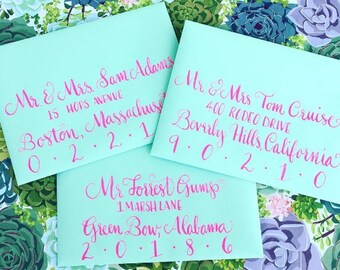 Mr. & Mrs. Sam Adams
15 HOPS AVENUE
Boston, Massachuse
0 · 2 · 2 · 1
Mr. & Mrs Tom Cruise
400 RODEO DRIVE
Beverly Hills, California
9 · 0 · 2 · 1 · 0
Mr Forrest Gump
1 MARSH LANE
Green Bow, Alabama
2 · 0 · 1 · 8 · 6